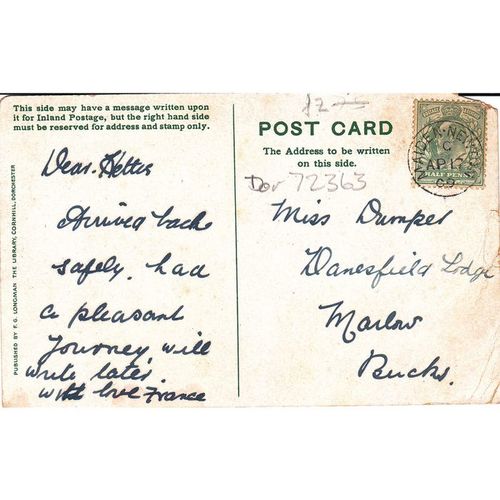 This side may have a message written upon
it for Inland Postage, but the right hand side
must be reserved for address and stamp only.
Dear Hettie
Arrived back
safely, had
a pleasant
Journey will
write later.
with love France
PUBLISHED BY F. G. LONGMAN THE LIBRARY, CORNHILL, DORCHESTER
12
POST CARD
The Address to be written
on this side.
Dor 72363
Miss Dumper
Danesfield Lodge
Marlow
Bucks.
MAIDEN-NEWTON
C
AP 17
09
HALF PENNY